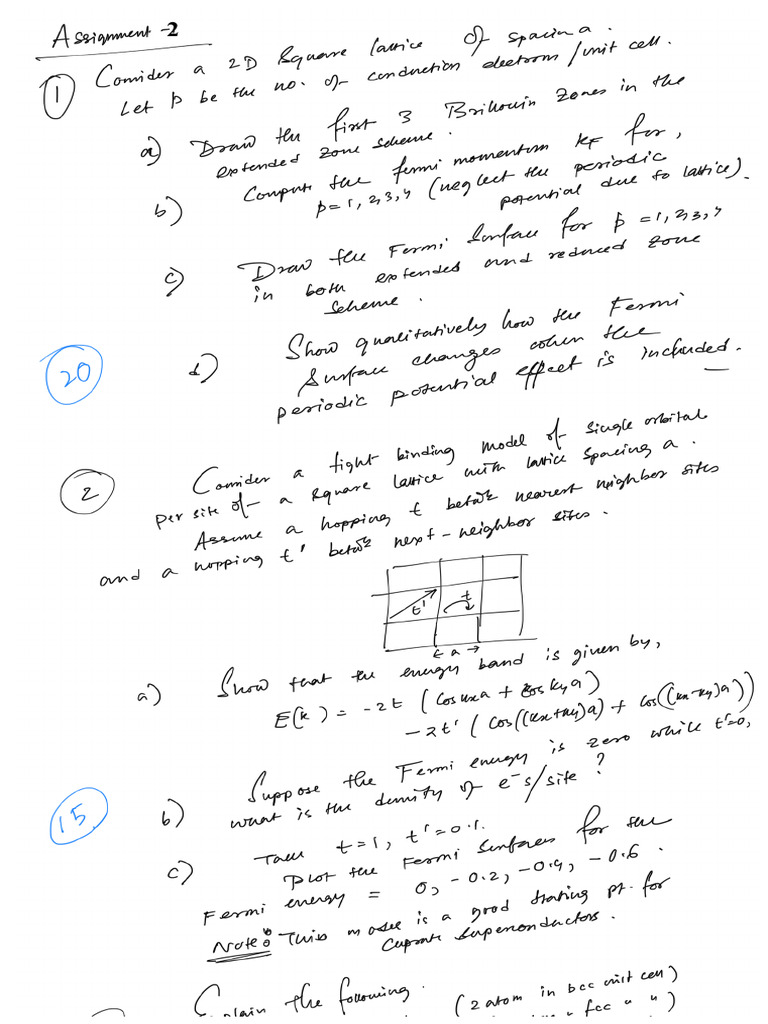 Assignment -2
① Consider a 2D square lattice of spacing a.
Let p be the no. of conduction electrons/unit cell.
a) Draw the first 3 Brillouin zones in the
extended zone scheme.
b) Compute the fermi momentum kF for,
p=1,2,3,4 (neglect the periodic
potential due to lattice).
c) Draw the Fermi Surface for p = 1,2,3,4
in both extended and reduced zone
scheme.
20
d) Show qualitatively how the Fermi
Surface changes when the
periodic potential effect is included.
② Consider a tight binding model of single orbital
per site of a square lattice with lattice spacing a.
Assume a hopping t betwn nearest neighbor sites
and a hopping t' betwn next-neighbor sites.
t' t
← a →
a) Show that the energy band is given by,
E(k) = -2t (cos kxa + cos kya)
-2t' (cos((kx+ky)a) + cos((kx-ky)a))
15
b) Suppose the Fermi energy is zero while t'=0,
what is the density of e⁻s/site?
c) Take t=1, t'=0.1.
Plot the Fermi Surfaces for the
Fermi energy = 0, -0.2, -0.4, -0.6.
Note: This model is a good starting pt. for
Cuprate Superconductors.
Explain the following.
(2 atom in bcc unit cell)
fcc " ")